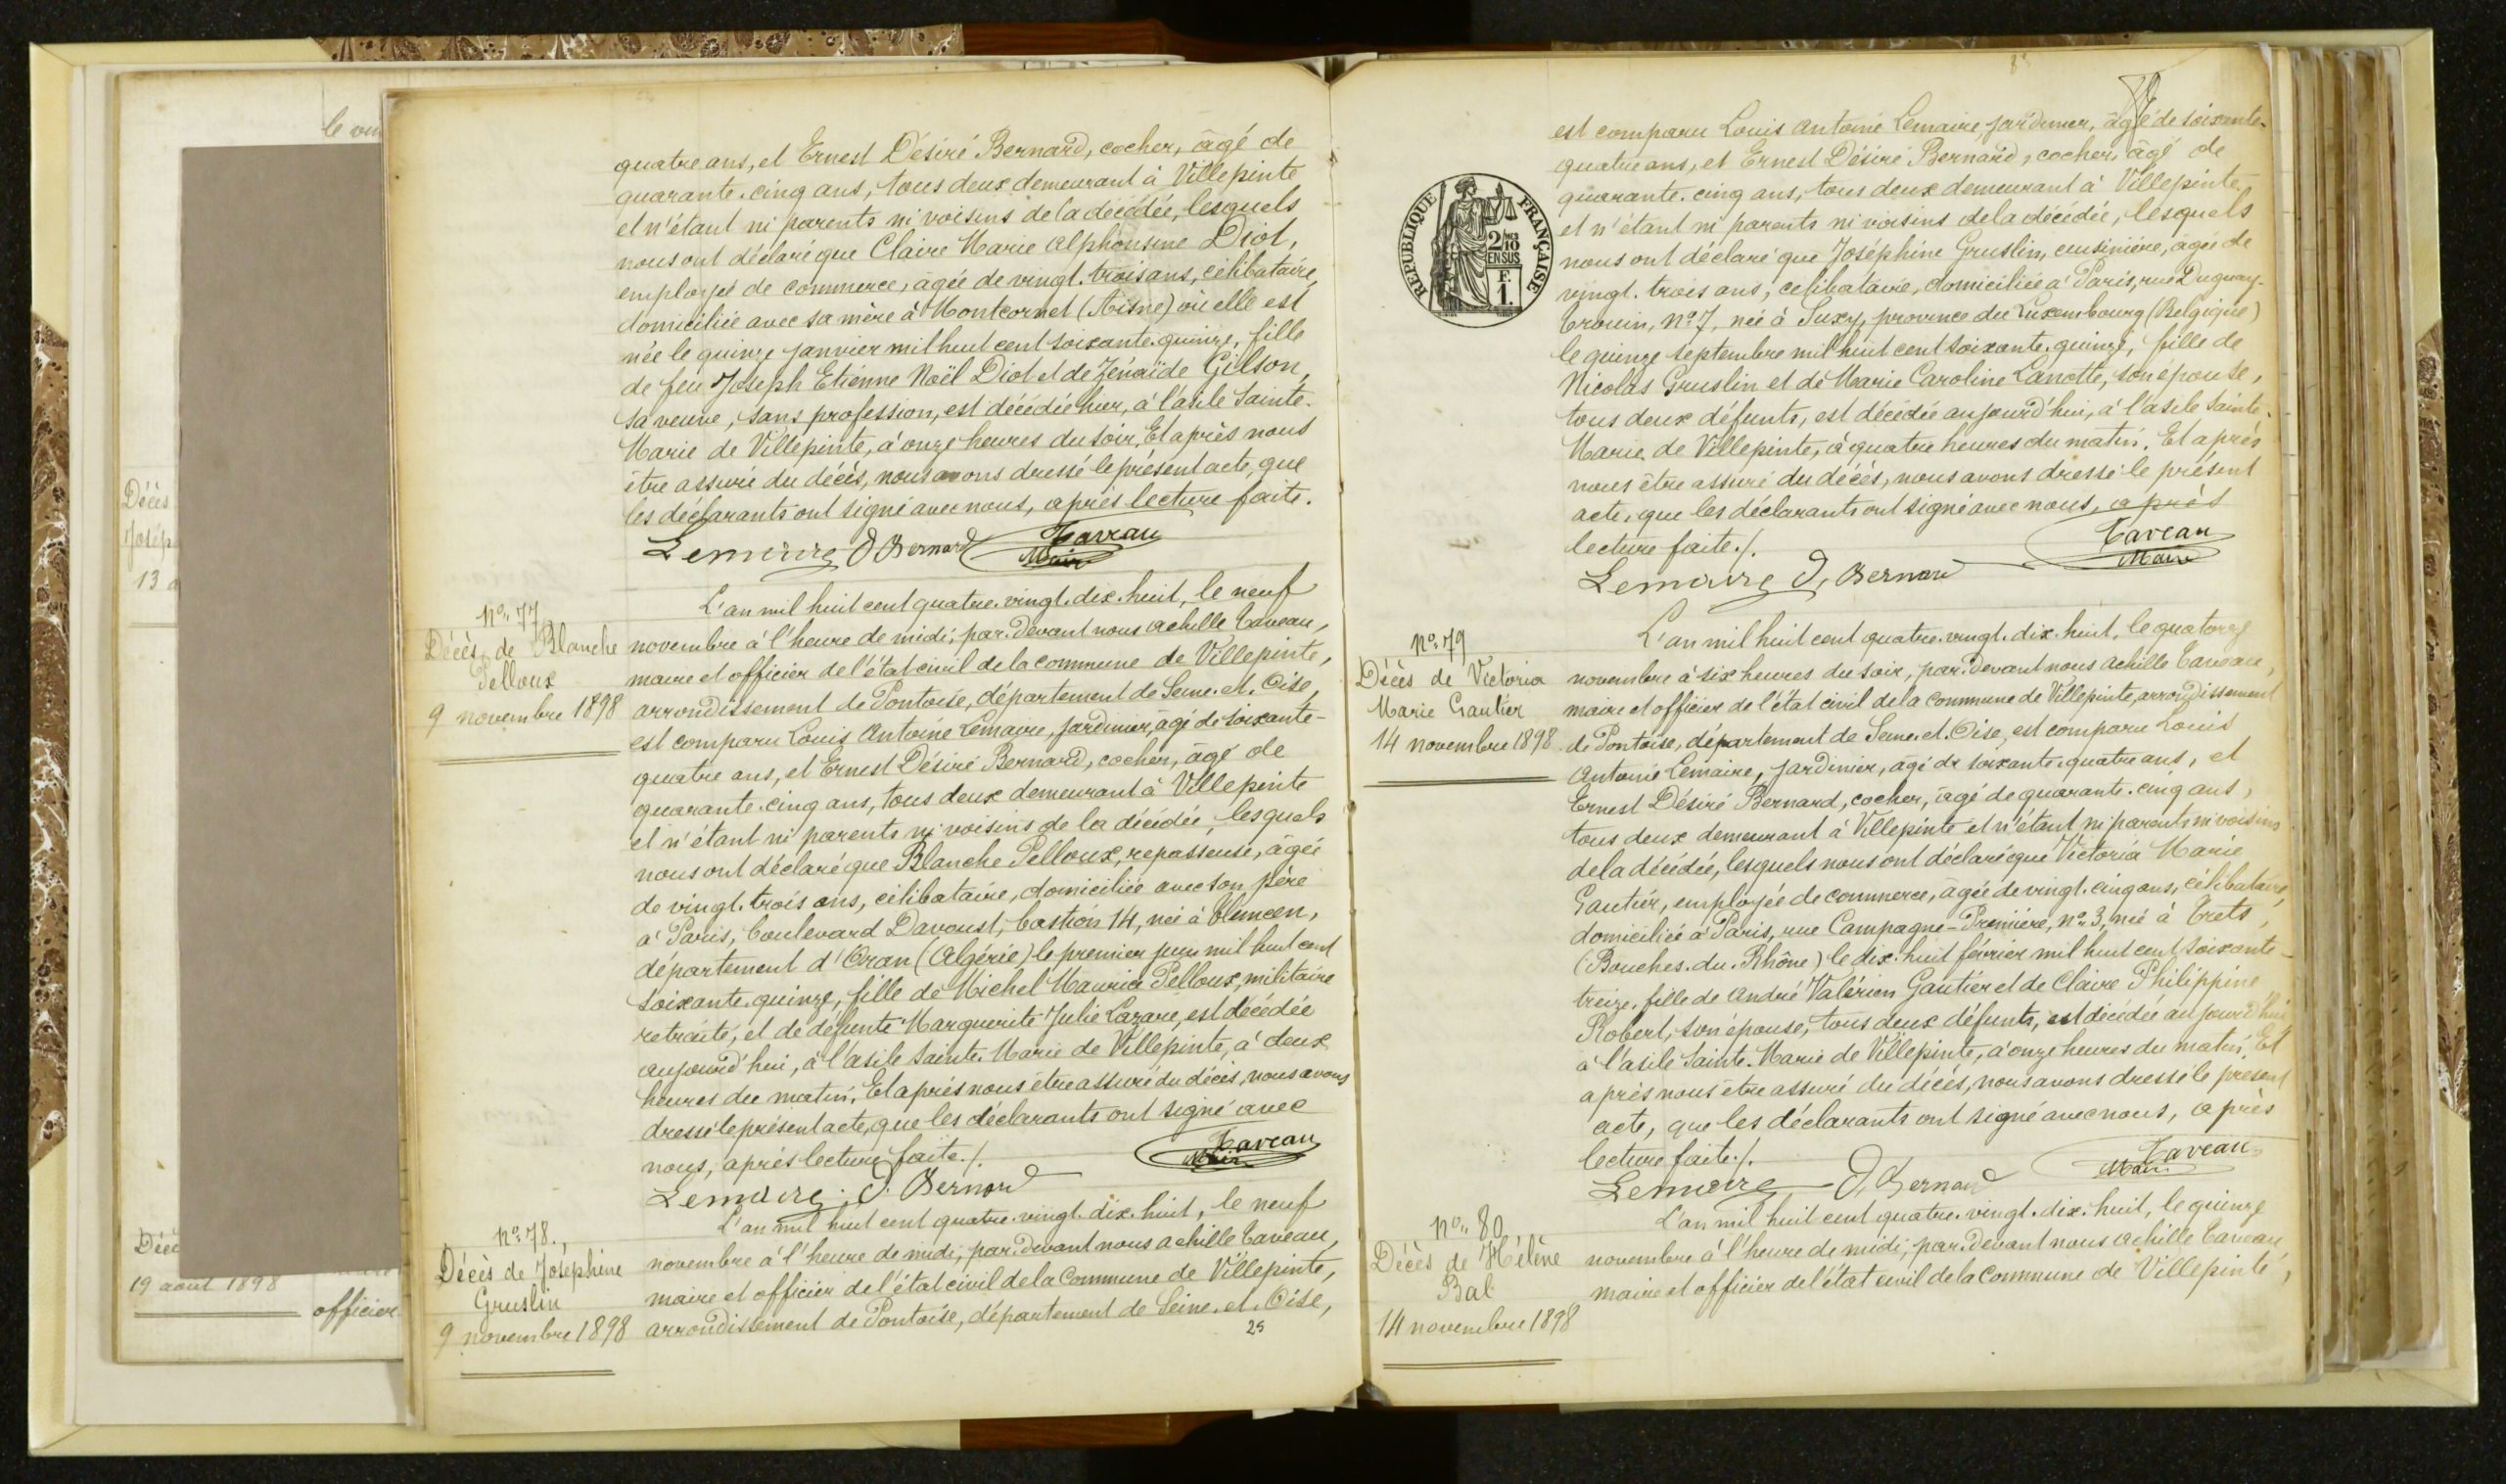 le
Décès
Josép
13 a
Décè
19 août 1898
officier
quatre ans, et Ernest Désiré Bernard, cocher, âgé de
quarante-cinq ans, tous deux demeurant à Villepinte
et n'étant ni parents ni voisins de la décédée, lesquels
nous ont déclaré que Claire Marie Alphonsine Diot,
employée de commerce, âgée de vingt-trois ans, célibataire,
domiciliée avec sa mère à Montcornet (Aisne) où elle est
née le quinze janvier mil huit cent soixante-quinze, fille
de feu Joseph Etienne Noël Diot et de Zénaïde Gilson,
sa veuve, sans profession, est décédée hier, à l'asile Sainte-
Marie de Villepinte, à onze heures du soir. Et après nous
être assuré du décès, nous avons dressé le présent acte, que
les déclarants ont signé avec nous, après lecture faite.
Lemaire D Bernard Taveau
Maire
No 77
Décès de Blanche
Pelloux
9 novembre 1898
L'an mil huit cent quatre-vingt-dix-huit, le neuf
novembre à l'heure de midi, par-devant nous Achille Taveau,
maire et officier de l'état civil de la commune de Villepinte,
arrondissement de Pontoise, département de Seine-et-Oise,
est comparu Louis Antoine Lemaire, jardinier, âgé de soixante-
quatre ans, et Ernest Désiré Bernard, cocher, âgé de
quarante-cinq ans, tous deux demeurant à Villepinte
et n'étant ni parents ni voisins de la décédée, lesquels
nous ont déclaré que Blanche Pelloux, repasseuse, âgée
de vingt-trois ans, célibataire, domiciliée avec son père
à Paris, boulevard Davoust, bastion 14, née à Tlemcen,
département d'Oran (Algérie) le premier juin mil huit cent
soixante-quinze, fille de Michel Maurice Pelloux, militaire
retraité, et de défunte Marguerite Julie Lazare, est décédée
aujourd'hui, à l'asile Sainte-Marie de Villepinte, à deux
heures du matin. Et après nous être assuré du décès, nous avons
dressé le présent acte, que les déclarants ont signé avec
nous, après lecture faite./.
Taveau
Maire
Lemaire D. Bernard
No 78.
Décès de Joséphine
Gruslin
9 novembre 1898
L'an mil huit cent quatre-vingt-dix-huit, le neuf
novembre à l'heure de midi, par-devant nous Achille Taveau,
maire et officier de l'état civil de la Commune de Villepinte,
arrondissement de Pontoise, département de Seine-et-Oise,
25
REPUBLIQUE FRANÇAISE
2/10
EN SUS
F.
1.
est comparu Louis Antoine Lemaire, jardinier, âgé de soixante-
quatre ans, et Ernest Désiré Bernard, cocher, âgé de
quarante-cinq ans, tous deux demeurant à Villepinte
et n'étant ni parents ni voisins de la décédée, lesquels
nous ont déclaré que Joséphine Gruslin, cuisinière, âgée de
vingt-trois ans, célibataire, domiciliée à Paris, rue Duguay-
Trouin, No 7, née à Suxy, province du Luxembourg (Belgique)
le quinze septembre mil huit cent soixante-quinze, fille de
Nicolas Gruslin et de Marie Caroline Lanotte, son épouse,
tous deux défunts, est décédée aujourd'hui, à l'asile Sainte-
Marie de Villepinte, à quatre heures du matin. Et après
nous être assuré du décès, nous avons dressé le présent
acte, que les déclarants ont signé avec nous, après
lecture faite./.
Taveau
Maire
Lemaire D. Bernard
No 79
Décès de Victoria
Marie Gautier
14 novembre 1898
L'an mil huit cent quatre-vingt-dix-huit, le quatorze
novembre à six heures du soir, par-devant nous Achille Taveau,
maire et officier de l'état civil de la Commune de Villepinte, arrondissement
de Pontoise, département de Seine-et-Oise, est comparu Louis
Antoine Lemaire, jardinier, âgé de soixante-quatre ans, et
Ernest Désiré Bernard, cocher, âgé de quarante-cinq ans,
tous deux demeurant à Villepinte et n'étant ni parents ni voisins
de la décédée, lesquels nous ont déclaré que Victoria Marie
Gautier, employée de commerce, âgée de vingt-cinq ans, célibataire,
domiciliée à Paris, rue Campagne-Première, no 3, née à Trets,
(Bouches-du-Rhône) le dix-huit février mil huit cent soixante-
treize, fille de André Valérien Gautier et de Claire Philippine
Robert, son épouse, tous deux défunts, est décédée aujourd'hui
à l'asile Sainte-Marie de Villepinte, à onze heures du matin. Et
après nous être assuré du décès, nous avons dressé le présent
acte, que les déclarants ont signé avec nous, après
lecture faite./.
Taveau
Maire
Lemaire D. Bernard
No 80
Décès de Hélène
Bal
14 novembre 1898
L'an mil huit cent quatre-vingt-dix-huit, le quinze
novembre à l'heure de midi, par-devant nous Achille Taveau
maire et officier de l'état civil de la Commune de Villepinte,